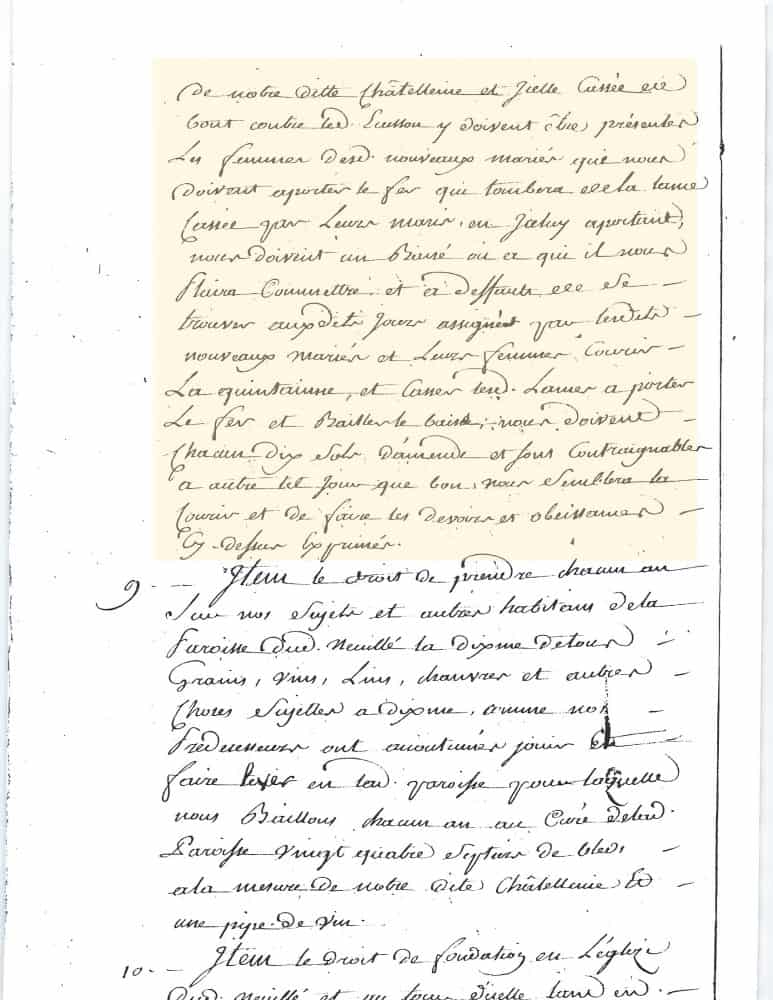 de notre ditte Châtellenie et Jcelle Cassée ece
bout contre led. Ecusson y doivent être présentes
Les femmes desd. nouveaux mariés qui nous
doivent aporter le fer qui tombera de la lame
Cassée par Leurs maris, en Jceluy aportant,
nous doivent un Baisé ou a qui il nous
Plaira Commettre. et a deffaute de se
trouver auxdits Jours assignés par lesdits
nouveaux mariés et Leurs femmes Courir
La quintainne, et Casser lesd. Lames a porter
Le fer et Bailler le baisé, nous doivent
Chacun dix sols d'amende et sont Contraignables
a autre tel Jour que bon nous Semblera la
Courir et de faire les devoirs et obeissances
Cy dessus Exprimés.
9. — Jtem le droit de prendre chacun an
Sur nos Sujets et autres habitans de la
Paroisse dud. Neuillé la dixme de tous
Grains, vins, Lins, chanvres et autres
Choses Sujettes a dixme, comme nos
Prédecesseurs ont acoutumés jouir et
faire lever en lad. paroisse pour laquelle
nous Baillons chacun an au Curé de lad.
Paroisse vingt quatre Septiers de bled,
a la mesure de notre dite Châtellenie Et
une pipe de vin.
10. — Jtem le droit de fondation en L'église
dud. Neuillé et